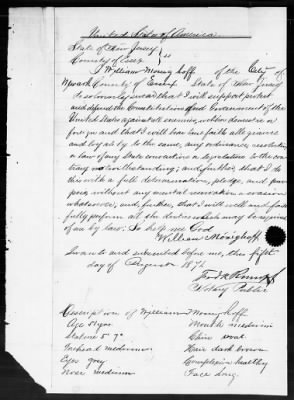 United States of America
State of New Jersey
County of Essex } ss
I William Mönighoff of the City of
Newark County of Essex State of New Jersey
do solemnly swear that I will support protect
and defend the Constitution and Government of the
United States against all enemies, whether domestic or
foreign and that I will bear true faith allegiance
and loyalty to the same, any ordinance, resolution
or law of any State convention or Legislature to the con
trary notwithstanding; and further, that I do
this with a full determination, pledge, and pur
pose, without any mental reservation or evasion
whatsoever; and, further, that I will well and faith
fully perform all the duties which may be required
of me by law. So help me God
William Mönighoff
Sworn to and subscribed before me, this first
day of August 187
Notary Public
Description of William Mönighoff
Age years Mouth medium
Stature 5 7 Chin oval
Forehead medium Hair dark brown
Eyes grey Complexion healthy
Nose medium Face long